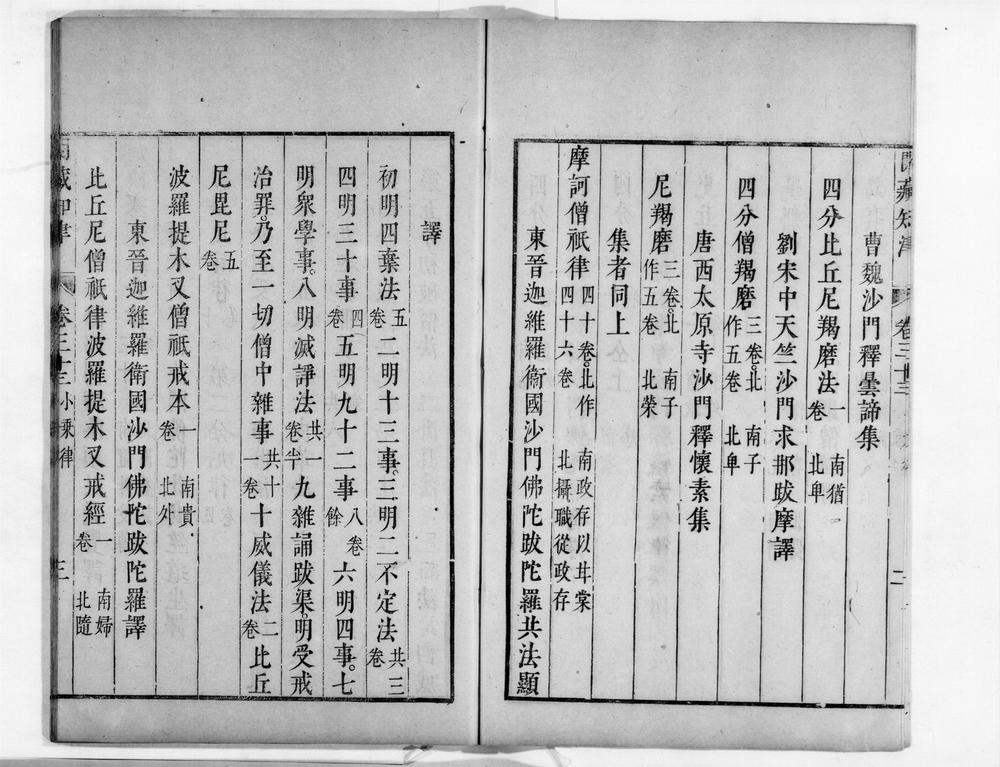 閱藏知津 卷三十三 二
曹魏沙門釋曇諦集
四分比丘尼羯磨法 一卷 南猶 北卑
劉宋中天竺沙門求那跋摩譯
四分僧羯磨 三卷。北作五卷 南子 北卑
唐西太原寺沙門釋懷素集
尼羯磨 三卷。北作五卷 南子 北榮
集者同上
摩訶僧祇律 四十卷。北作四十六卷 南政存以甘棠 北攝職從政存
東晉迦維羅衛國沙門佛陀跋陀羅共法顯
譯
初明四棄法 五卷 二明十三事。三明二不定法 共三卷
四明三十事 四卷 五明九十二事 八卷餘 六明四事。七
明眾學事。八明滅諍法 共卷半 九雜誦跋渠。明受戒
治罪。乃至一切僧中雜事 共十一卷 十威儀法 二卷 比丘
尼毘尼 五卷
波羅提木叉僧祇戒本 一卷 南貴 北外
東晉迦維羅衛國沙門佛陀跋陀羅譯
比丘尼僧祇律波羅提木叉戒經 一卷 南婦 北隨
閱藏知津 卷三十三 小乘律 三